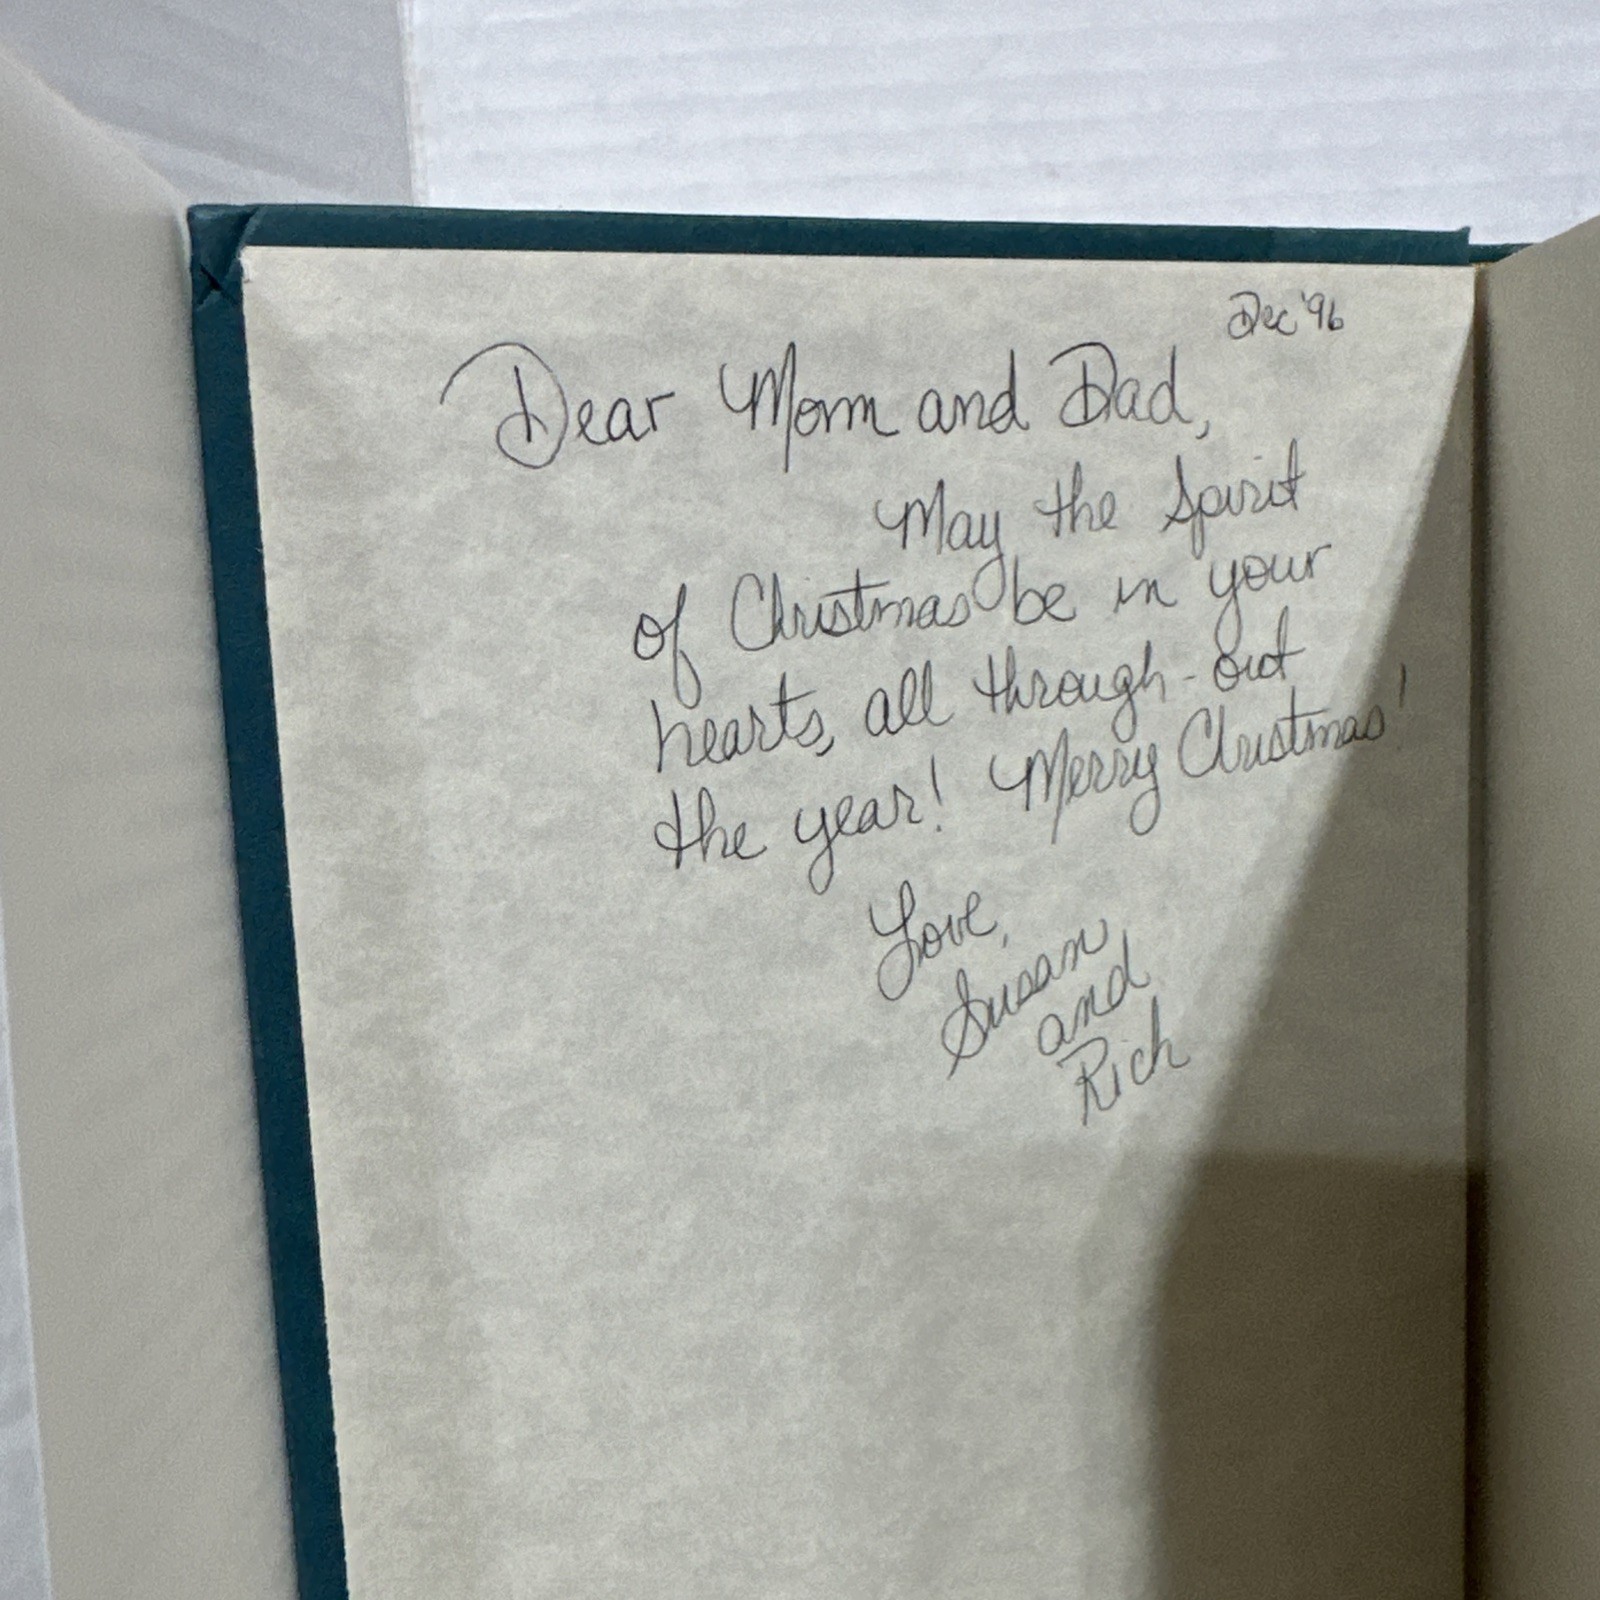 Dec '96
Dear Mom and Dad,
May the Spirit
of Christmas be in your
hearts, all through-out
the year! Merry Christmas!
Love,
Susan
and
Rich